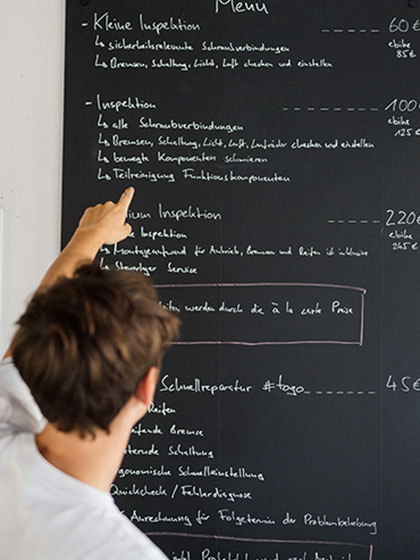 Menü
- Kleine Inspektion ---- 60€
↳ sicherheitsrelevante Schraubverbindungen ebike 85€
↳ Bremsen, Schaltung, Licht, Luft checken und einstellen
- Inspektion ---- 100
↳ alle Schraubverbindungen ebike 125€
↳ Bremsen, Schaltung, Licht, Luft, Laufräder checken und einstellen
↳ bewegte Komponenten schmieren
↳ Teilreinigung Funktionskomponenten
ium Inspektion ---- 220€
Inspektion ebike 245€
↳ Montageaufwand für Antrieb, Bremsen und Reifen ist inklusive
↳ Service
werden durch die à la carte Preise
Schnellreparatur #togo ---- 45€
Reifen
fende Bremse
Schaltung
gonomische Schnelleinstellung
Quickcheck / Fehlerdiagnose
Anrechnung für Folgetermin der Problembehebung